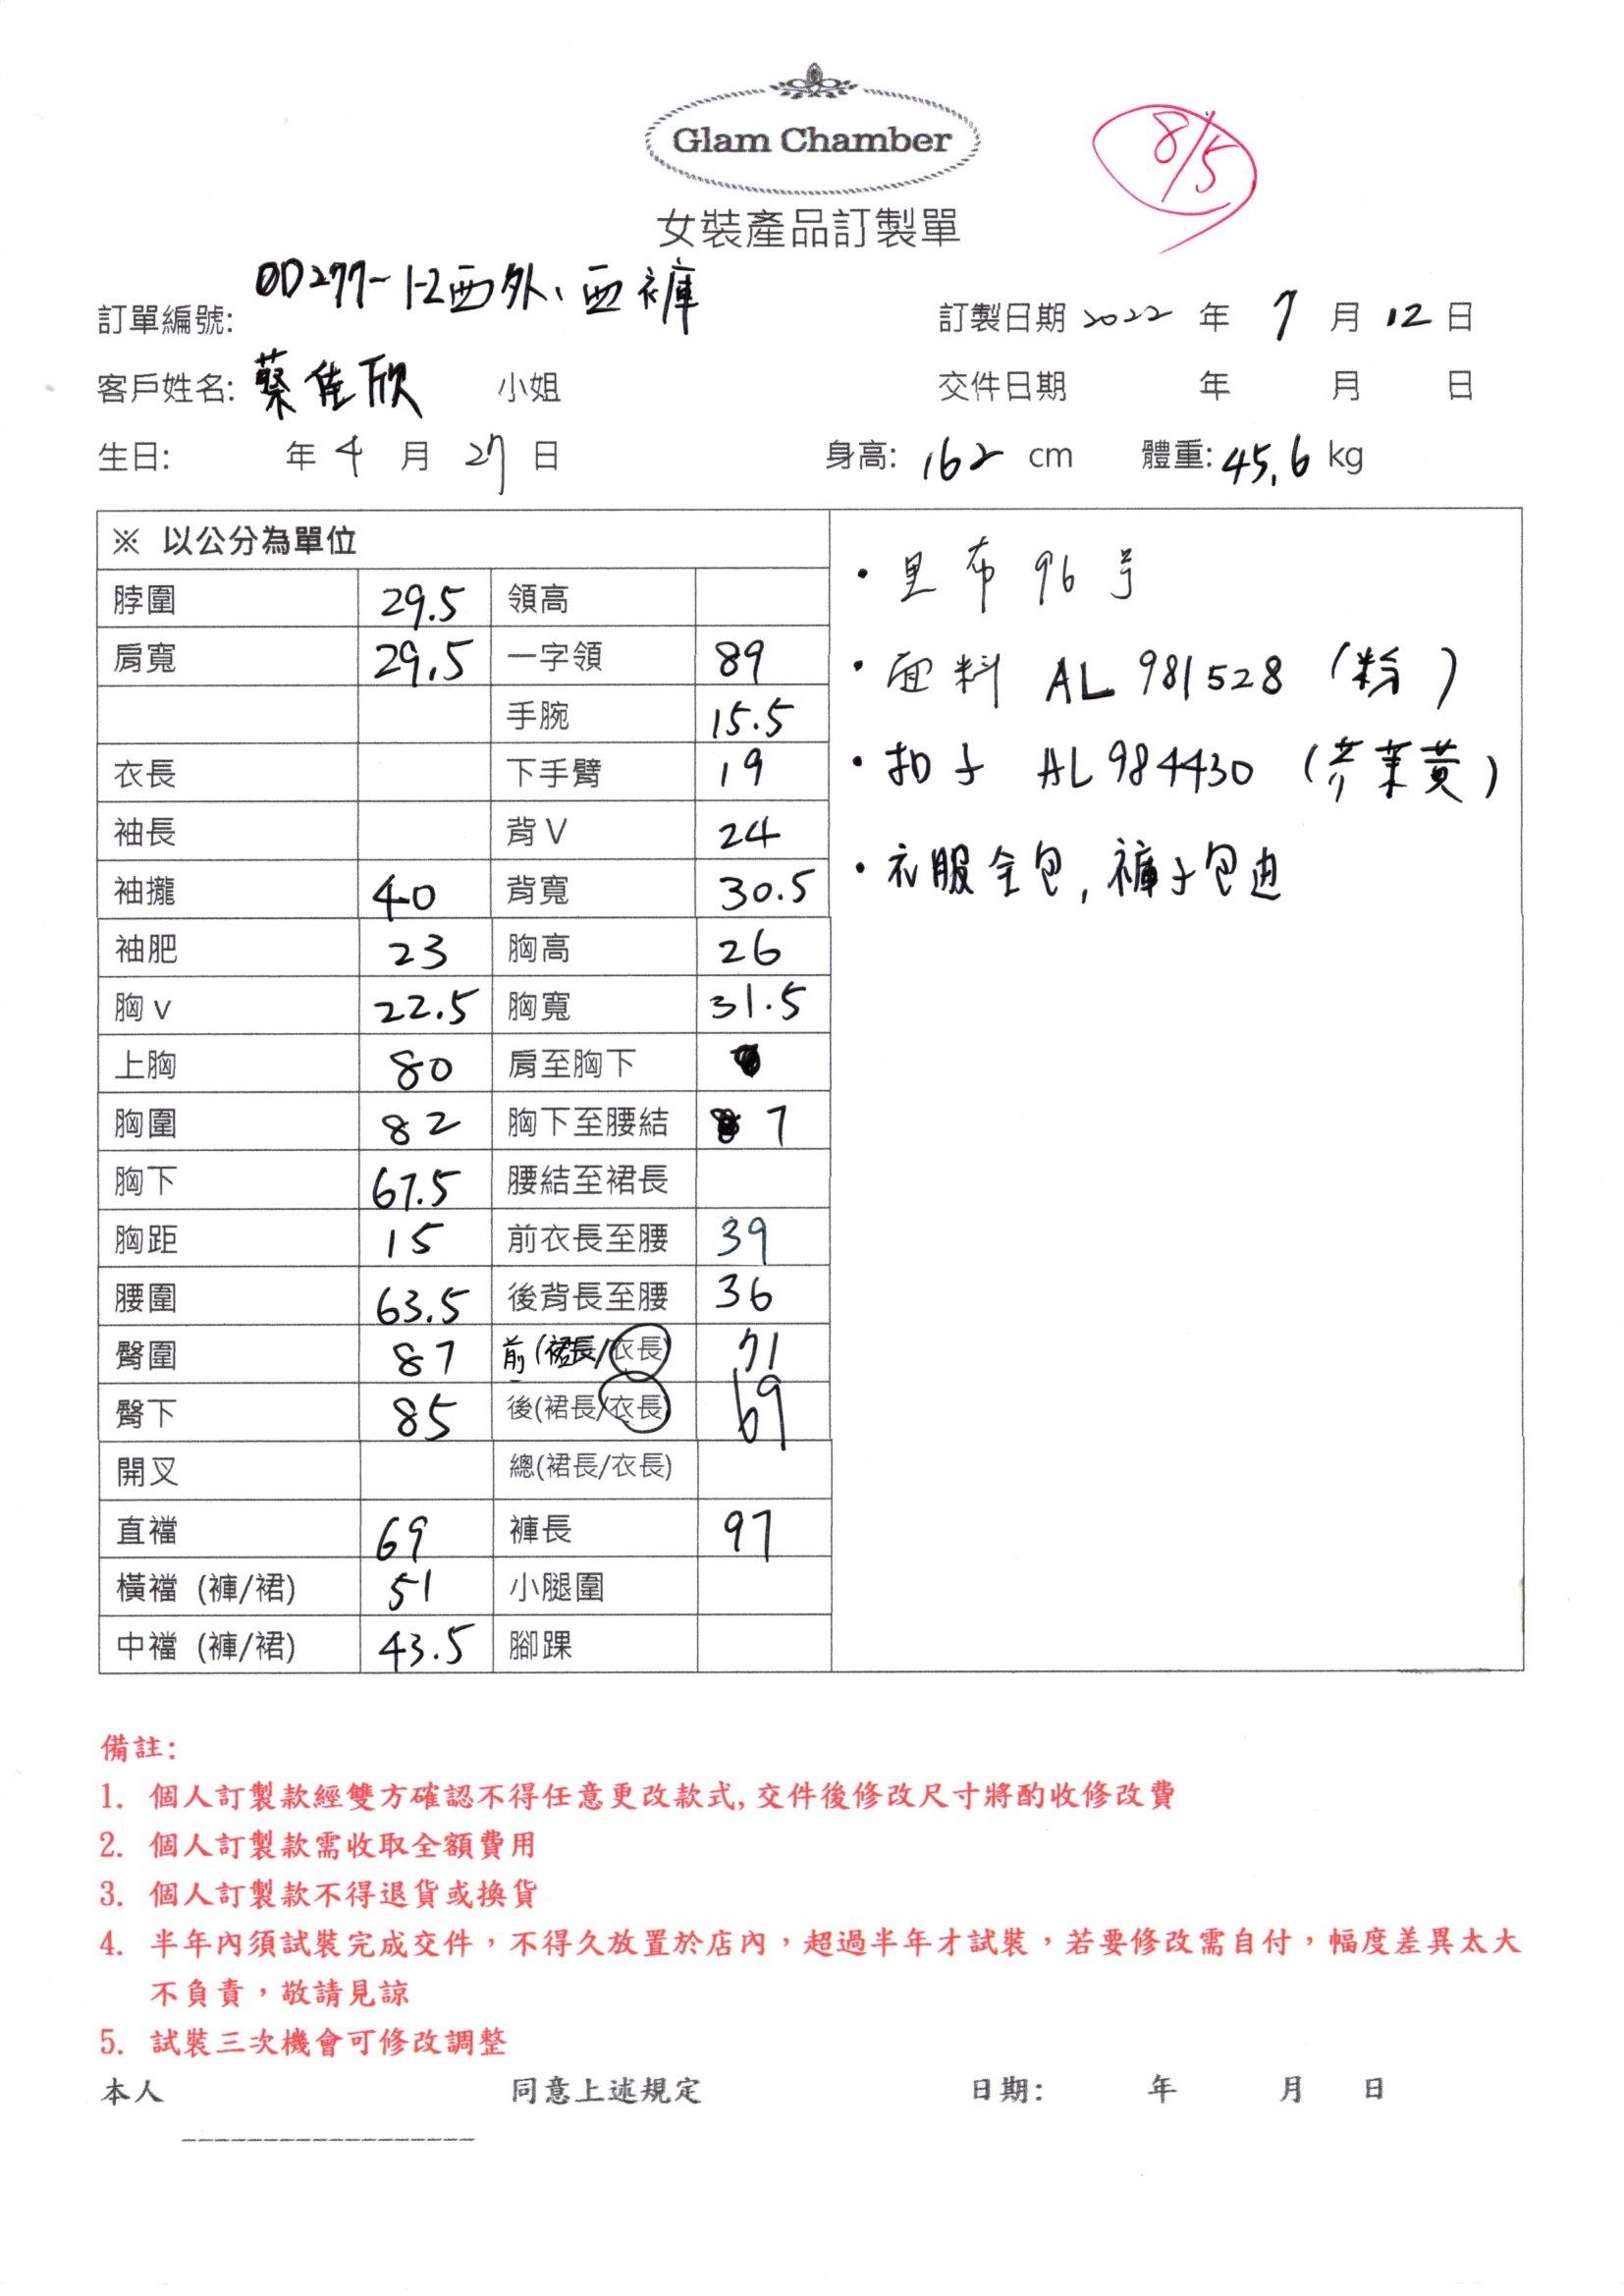 Glam Chamber
8/5
女裝產品訂製單
訂單編號: OD277-1-2西外、西褲
訂製日期 2022 年 7 月 12 日
客戶姓名: 蔡佳欣 小姐
交件日期 年 月 日
生日: 年 4 月 27 日 身高: 162 cm 體重: 45.6 kg
※ 以公分為單位
脖圍 29.5 領高
肩寬 29.5 一字領 89
手腕 15.5
衣長 下手臂 19
袖長 背V 24
袖攏 40 背寬 30.5
袖肥 23 胸高 26
胸v 22.5 胸寬 31.5
上胸 80 肩至胸下
胸圍 82 胸下至腰結 7
胸下 67.5 腰結至裙長
胸距 15 前衣長至腰 39
腰圍 63.5 後背長至腰 36
臀圍 87 前(裙長/衣長) 71
臀下 85 後(裙長/衣長) 69
開叉 總(裙長/衣長)
直襠 69 褲長 97
橫襠 (褲/裙) 51 小腿圍
中襠 (褲/裙) 43.5 腳踝
・里布 96号
・面料 AL 981528 (粉)
・扣子 AL984430 (芥茉黃)
・衣服全包, 褲子包边
備註:
1. 個人訂製款經雙方確認不得任意更改款式,交件後修改尺寸將酌收修改費
2. 個人訂製款需收取全額費用
3. 個人訂製款不得退貨或換貨
4. 半年內須試裝完成交件，不得久放置於店內，超過半年才試裝，若要修改需自付，幅度差異太大
不負責，敬請見諒
5. 試裝三次機會可修改調整
本人 同意上述規定 日期: 年 月 日